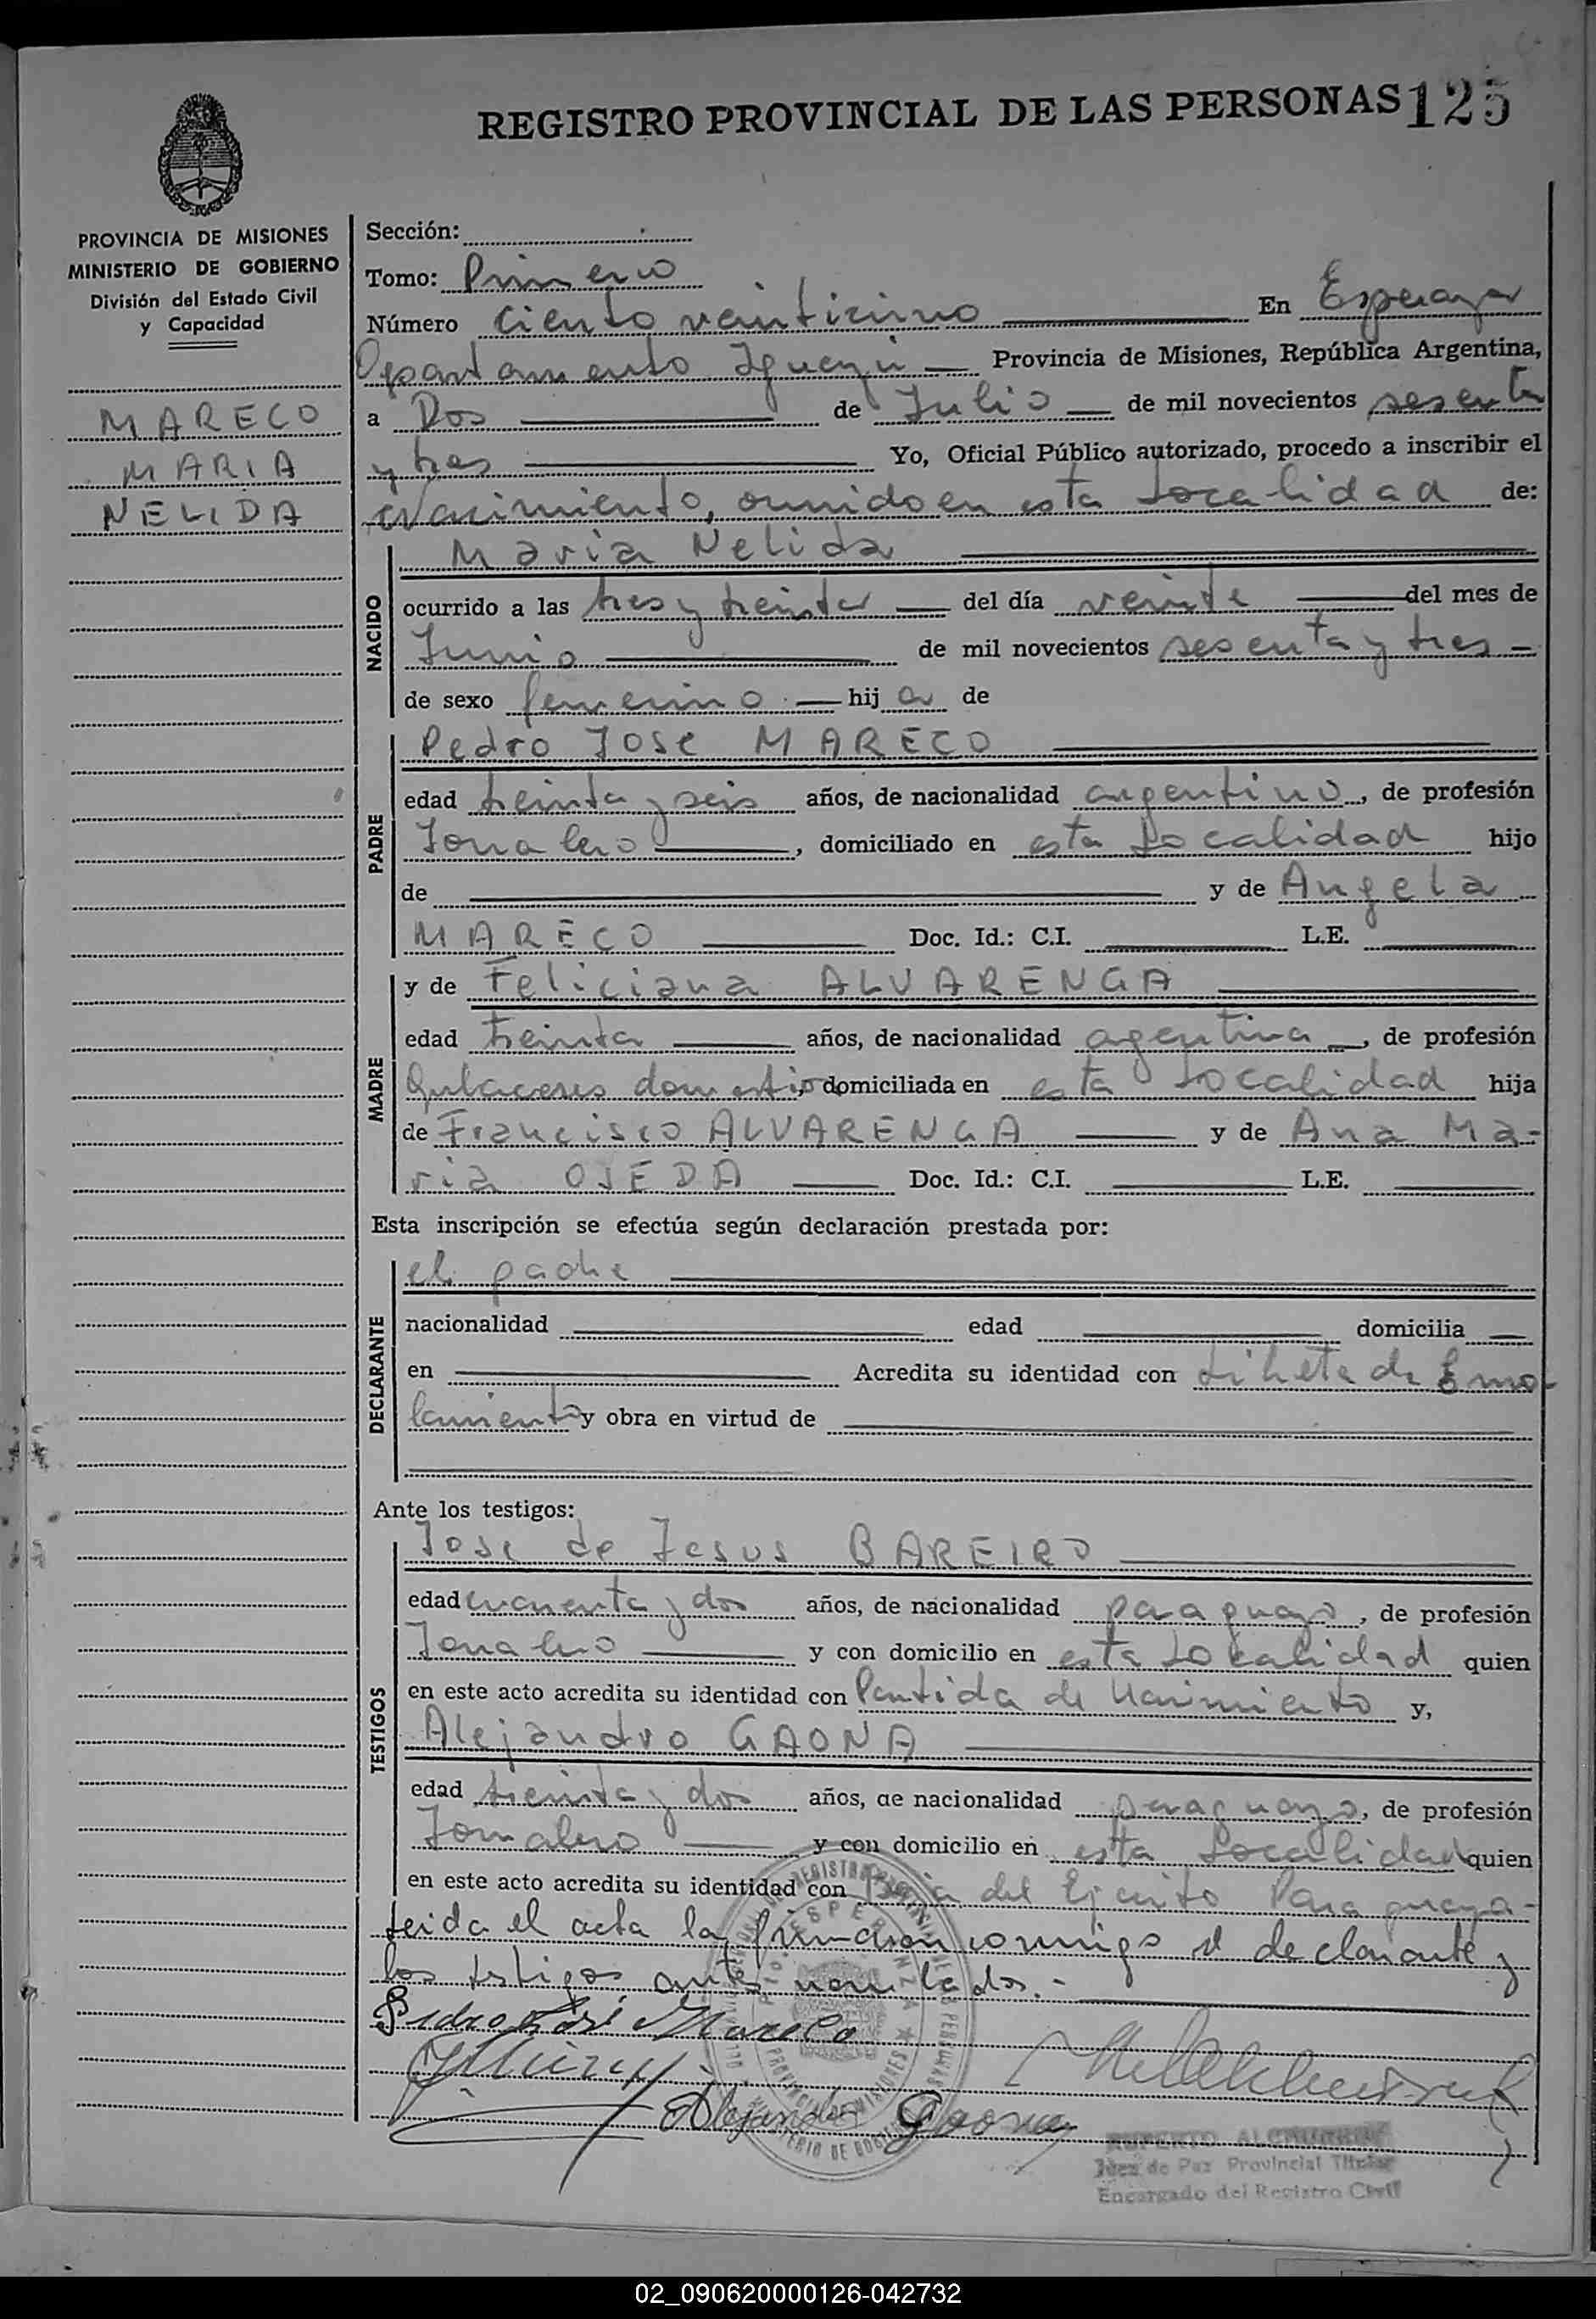 REGISTRO PROVINCIAL DE LAS PERSONAS 125
PROVINCIA DE MISIONES
MINISTERIO DE GOBIERNO
División del Estado Civil
y Capacidad
MARECO
MARIA
NELIDA
Sección:
Tomo: Primero
Número ciento veinticinco En Esperanza
Departamento Iguazú Provincia de Misiones, República Argentina,
a Dos de Julio de mil novecientos sesenta
y tres Yo, Oficial Público autorizado, procedo a inscribir el
Nacimiento, ocurrido en esta Localidad de:
NACIDO
Maria Nelida
ocurrido a las tres y treinta del día veinte del mes de
Junio de mil novecientos sesenta y tres
de sexo femenino hij a de
PADRE
Pedro Jose MARECO
edad treinta y seis años, de nacionalidad argentino, de profesión
Jornalero, domiciliado en esta Localidad hijo
de y de Angela
MARECO Doc. Id.: C.I. L.E.
MADRE
y de Feliciana ALVARENGA
edad treinta años, de nacionalidad agentina, de profesión
Quehaceres domestico domiciliada en esta Localidad hija
de Francisco ALVARENGA y de Ana Ma-
ria OJEDA Doc. Id.: C.I. L.E.
Esta inscripción se efectúa según declaración prestada por:
DECLARANTE
el padre
nacionalidad edad domicilia
en Acredita su identidad con Libreta de Enro
lamiento y obra en virtud de
Ante los testigos:
TESTIGOS
Jose de Jesus BAREIRO
edad cuarenta y dos años, de nacionalidad paraguayo, de profesión
Jornalero y con domicilio en esta Localidad quien
en este acto acredita su identidad con Partida de Nacimiento y,
Alejandro GAONA
edad treinta y dos años, de nacionalidad paraguayo, de profesión
Jornalero y con domicilio en esta Localidad quien
en este acto acredita su identidad con Baja del Ejercito Paraguayo-
Leida el acta la firmaron conmigo el declarante y
los testigos antes nombrados.-
Pedro José Mareco
Alejandro Gaona
RUPERTO
Juez de Paz Provincial Titular
Encargado del Registro Civil
02_090620000126-042732